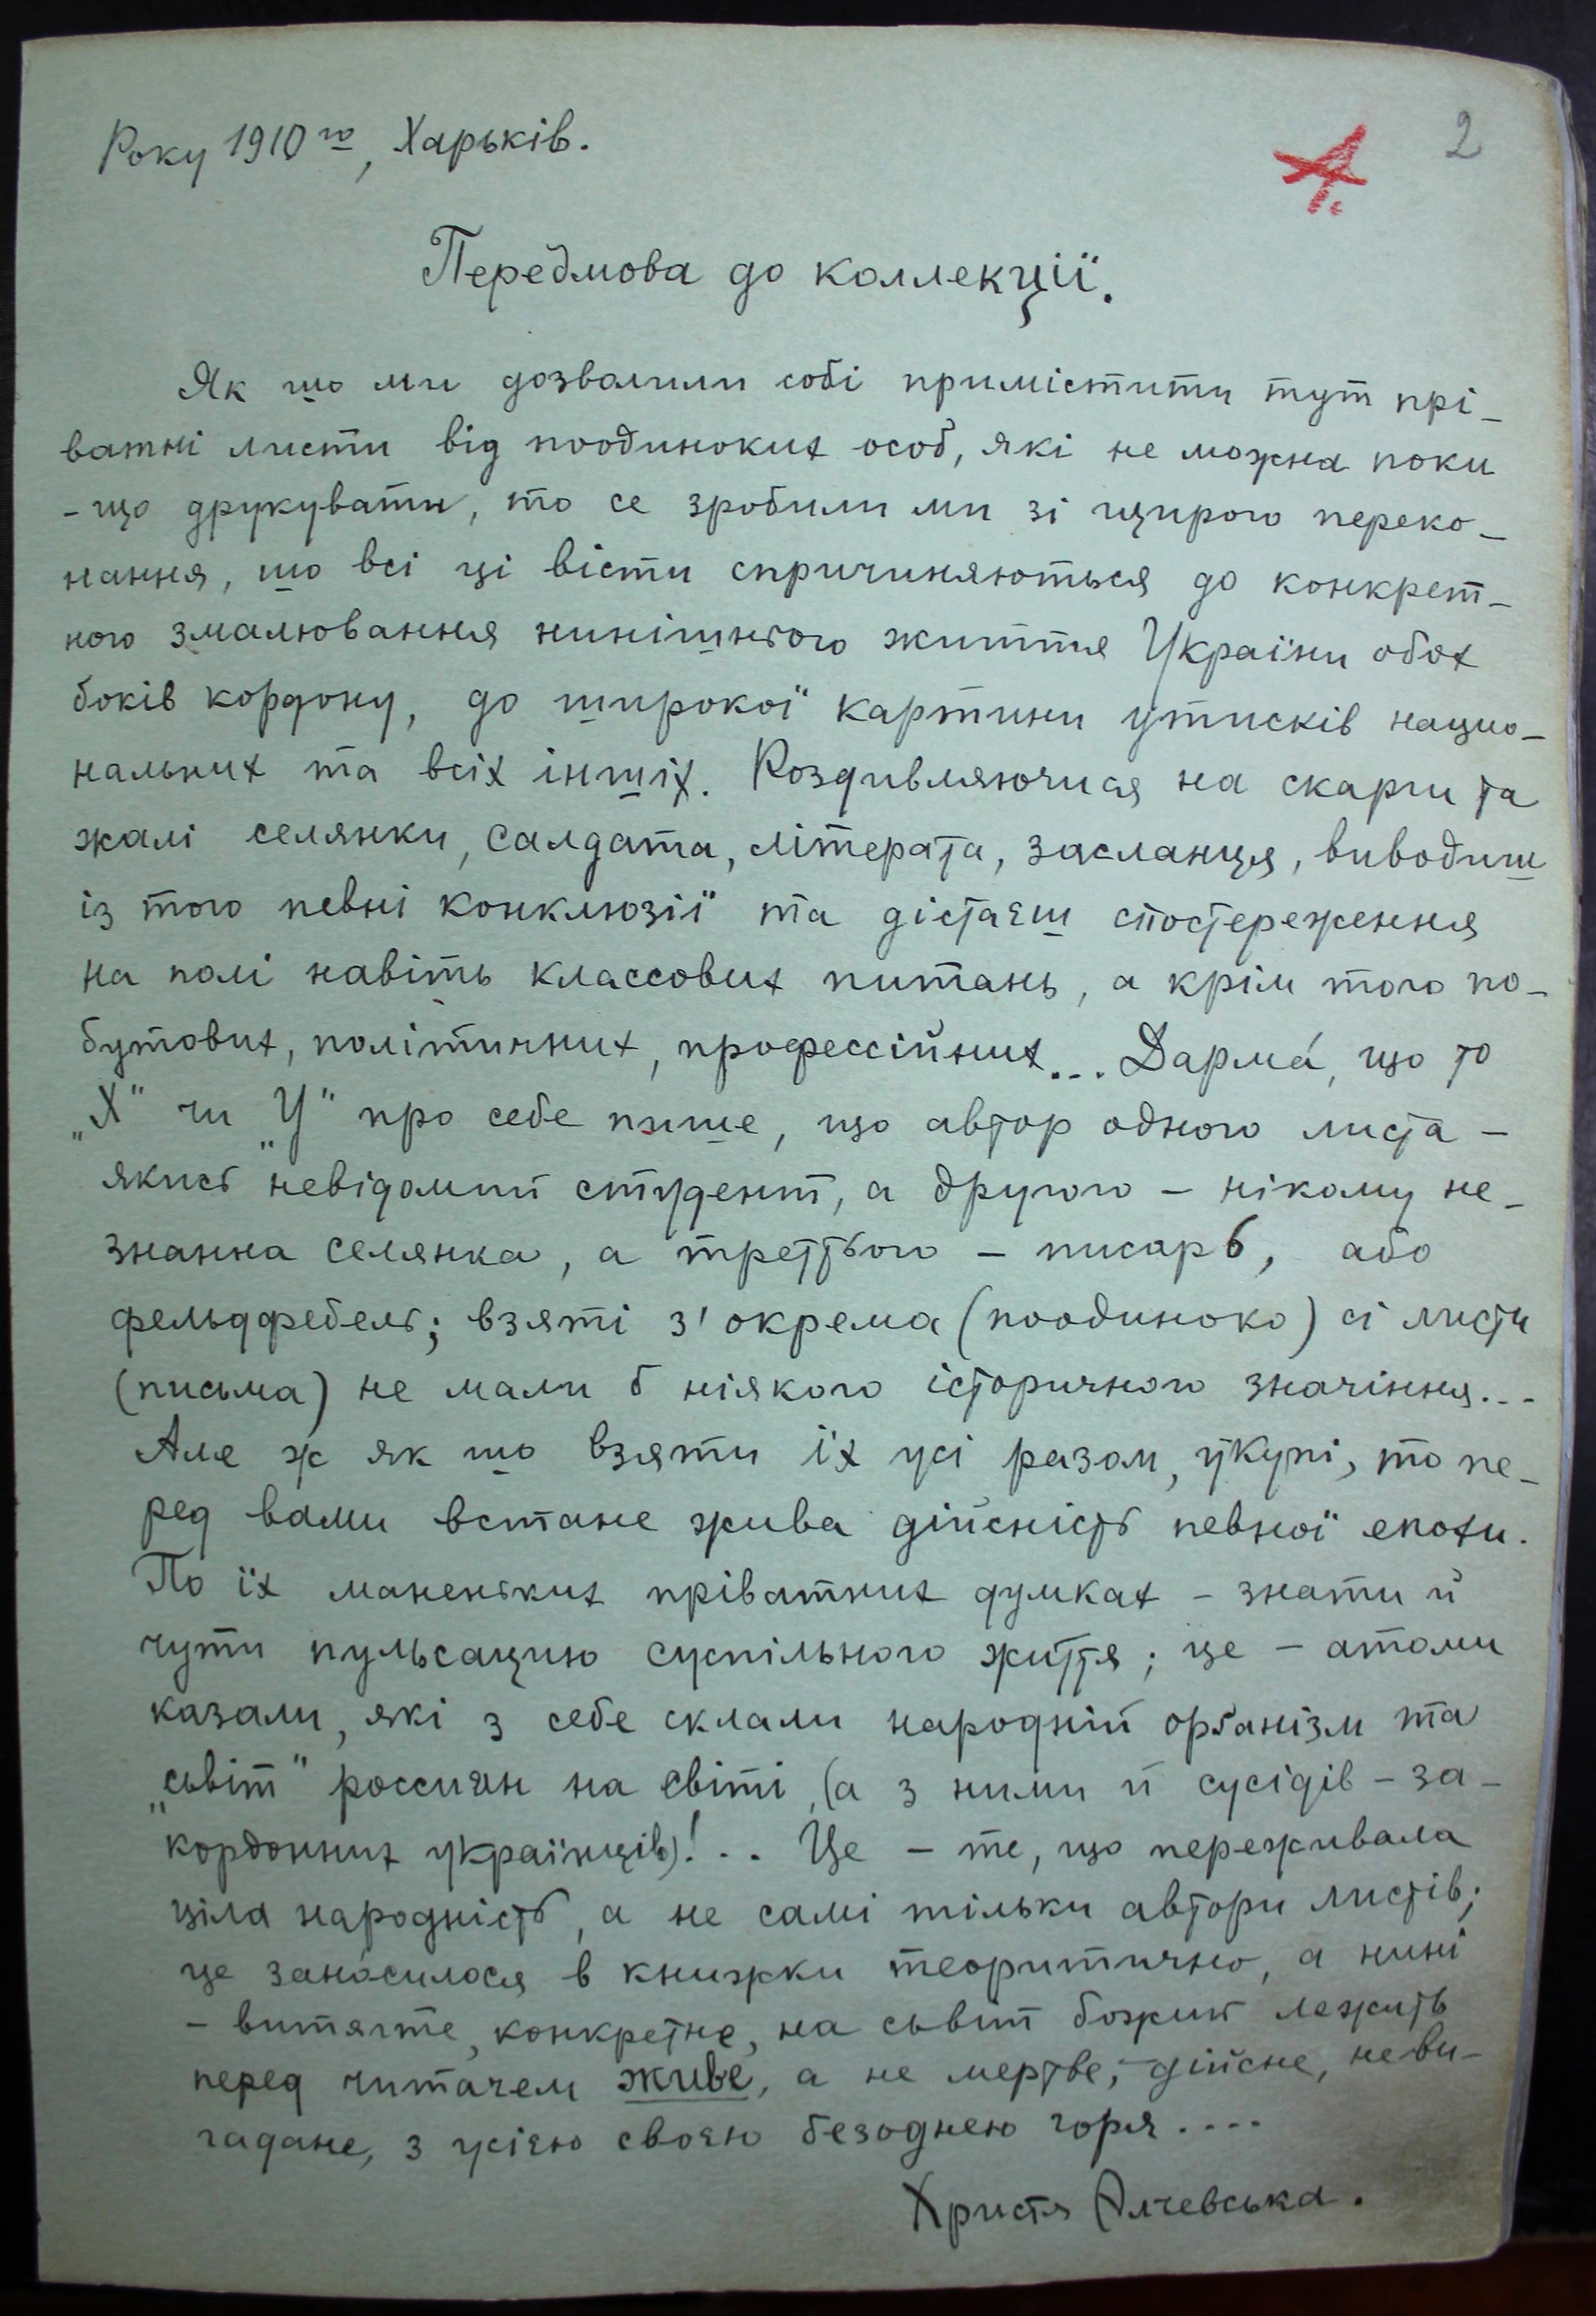 Року 1910го, Харьків.
2
Передмова до коллекції.
Як що ми дозволили собі примістити тут прі-
ватні листи від поодиноких особ, які не можна поки
-що друкувати, то се зробили ми зі щирого переко-
нання, що всі ці вісти спричиняються до конкрет-
ного змалювання нинішнього життя України обох
боків кордону, до широкої картини утисків націо-
нальних та всіх інших. Роздивляючися на скарги та
жалі селянки, салдата, літерата, засланця, виводиш
із того певні конклюзії та дістаєш спостереження
на полі навіть классових питань, а крім того по-
бутових, політичних, профессійних... Дарма́, що то
„X" чи „У" про себе пише, що автор одного листа -
якись невідомий студент, а другого - нікому не-
знанна селянка, а третього - писарь, або
фельдфебель; взяті з'окрема (поодиноко) сі листи
(письма) не мали б ніякого історичного значіння...
Але ж як що взяти їх усі разом, укупі, то пе-
ред вами встане жива дійсність певної епохи.
По їх маненьких пріватних думках - знати й
чути пульсацию суспільного життя; це - атоми
казали, які з себе склали народній орґанізм та
„сьвіт" россиян на світі, (а з ними й сусідів - за-
кордонних українців)!.. Це - те, що переживала
ціла народність, а не самі тільки автори листів;
це зано́силося в книжки теоритично, а нині
- витягте, конкретне, на сьвіт божий лежить
перед читачем живе, а не мертве, - дійсне, неви-
гадане, з усією своєю безоднею горя....
Христя Алчевська.